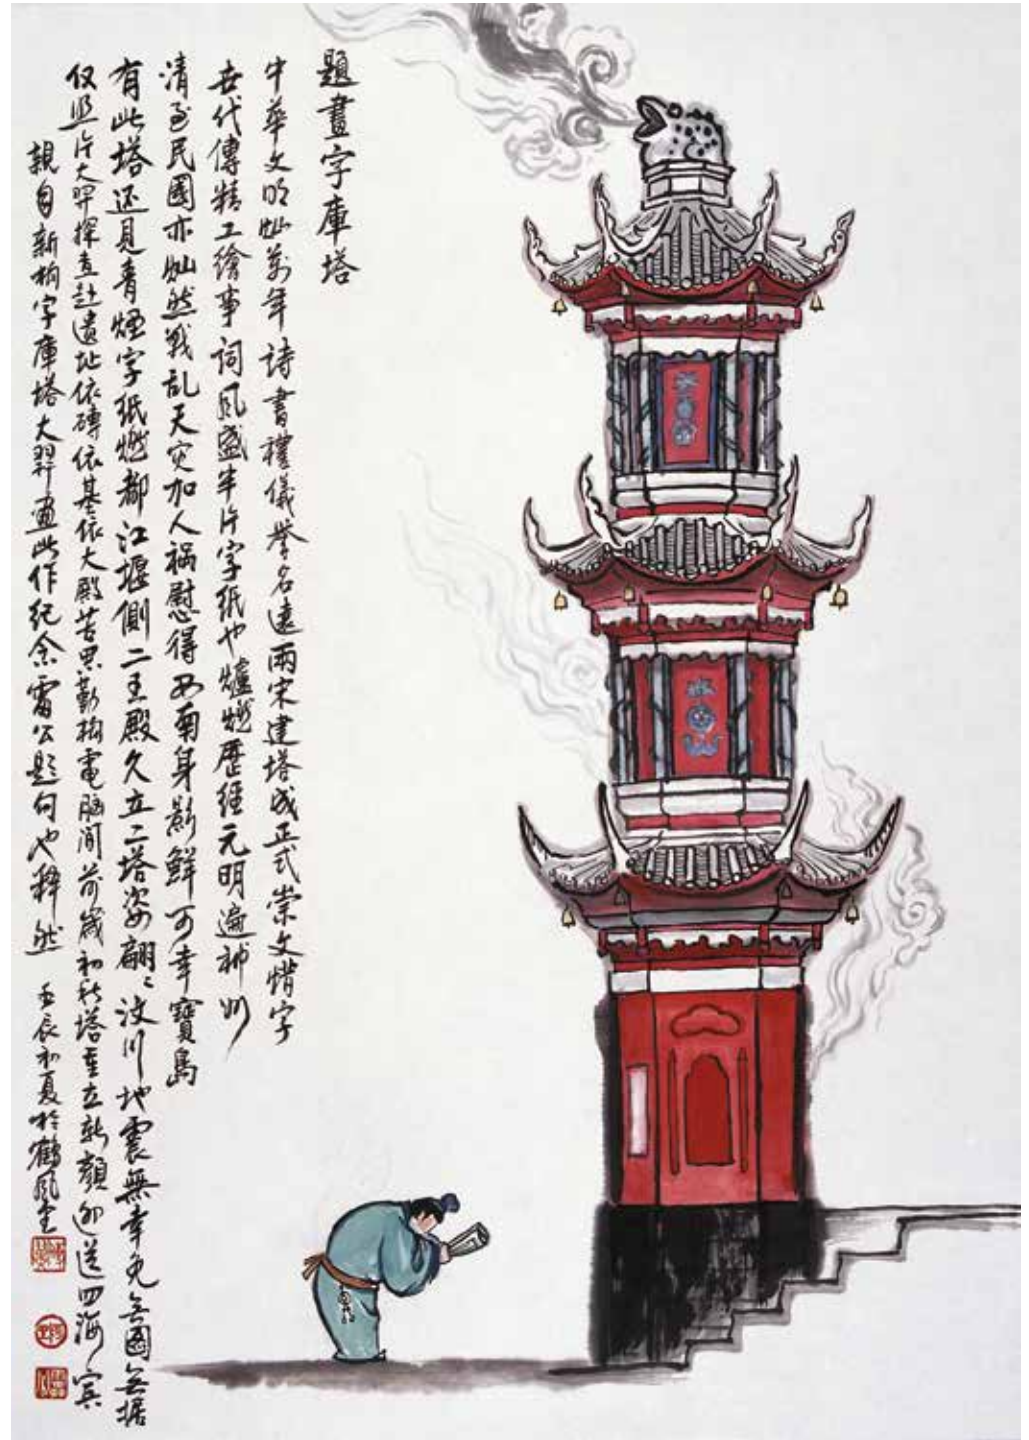 題畫字庫塔
中華文明灿萬年詩書禮儀譽名遠兩宋建塔成正式崇文惜字
世代傳精工繪事詞風盛半片字紙也爐燃歷經元明遍神州
清至民國亦灿然戰乱天灾加人禍慰得西南身影鮮可幸寶島
有此塔还見青煙字纸燃都江堰側二王殿久立二塔姿翩々汶川地震無幸免無圖無据
仅照片大羿探查赴遺址依磚依基依大殿苦思勤構電脑間前歲初秋塔重立新顏迎送四海賓
親自新構字庫塔大羿畫此作纪念雷公题句也释然 壬辰初夏於鶴風堂